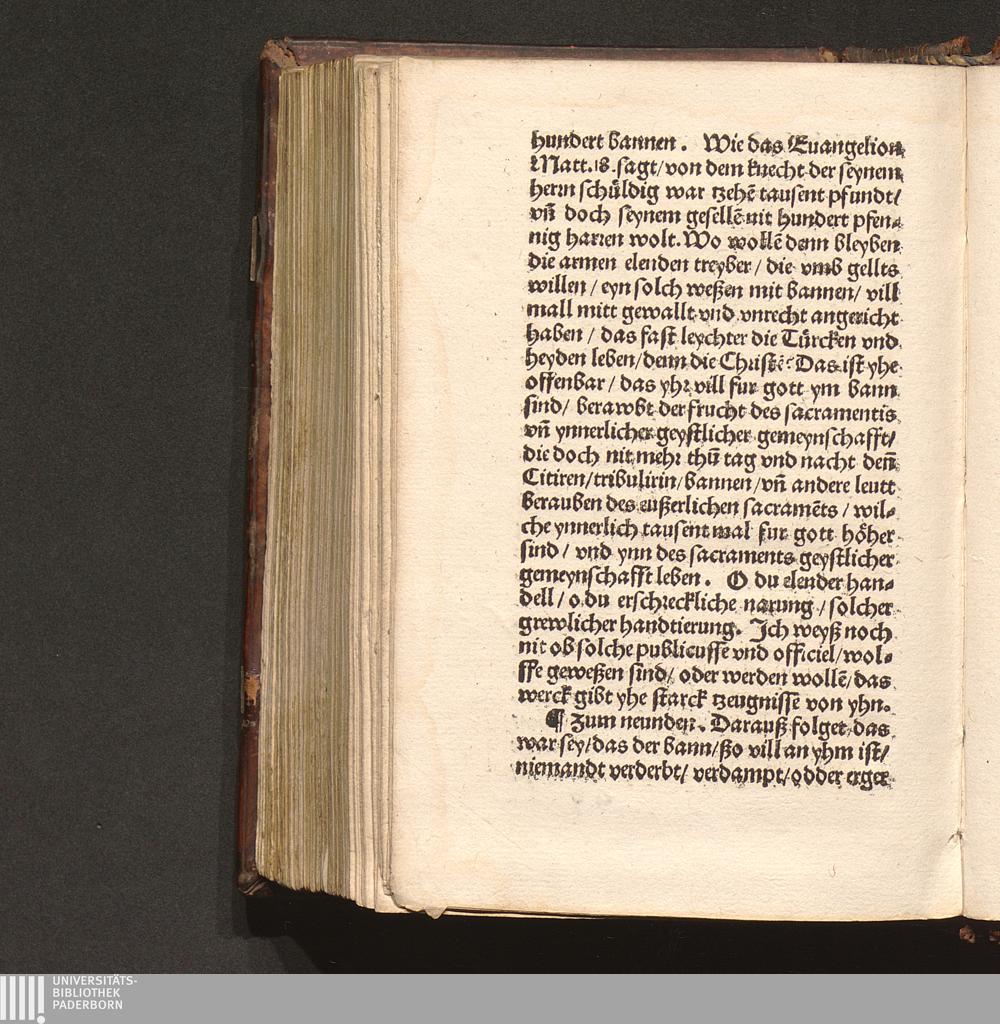 hundert bannen. Wie das Euangelion
Matt. 18. sagt/ von dem knecht der seynem
herrn schuͤldig war tzehẽ tausent pfundt/
vñ doch seynem gesellẽ nit hundert pfen⸗
nig harren wolt. Wo wollẽ denn bleyben
die armen elenden treyber/ die vmb gellts
willen/ eyn solch weßen mit bannen/ vill
mall mitt gewallt vnd vnrecht angericht
haben/ das fast leychter die Tuͤrcken vnd
heyden leben/ denn die Christẽ? Das ist yhe
offenbar/ das yhr vill fur gott ym bann
sind/ berawbt der frucht des sacramentis
vñ ynnerlicher geystlicher gemeynschafft/
die doch nit mehr thũ tag vnd nacht deñ
Citiren/ tribulirin/ bannen/ vñ andere leutt
berauben des eußerlichen sacramẽts/ wil⸗
che ynnerlich tausent mal fur gott hoͤher
sind/ vnd ynn des sacraments geystlicher
gemeynschafft leben. O du elender han⸗
dell/ o du erschreckliche narung/ solcher
grewlicher handtierung. Ich weyß noch
nit ob solche publicussẽ vnd officiel/ wol⸗
ffe geweßen sind/ oder werden wollẽ/ das
werck gibt yhe starck tzeugnisse von yhn.
¶ Zum neunden. Darauß folget/ das
war sey/ das der bann/ ßo vill an yhm ist/
niemandt verderbt/ verdampt/ odder erger
UNIVERSITÄTS-
BIBLIOTHEK
PADERBORN